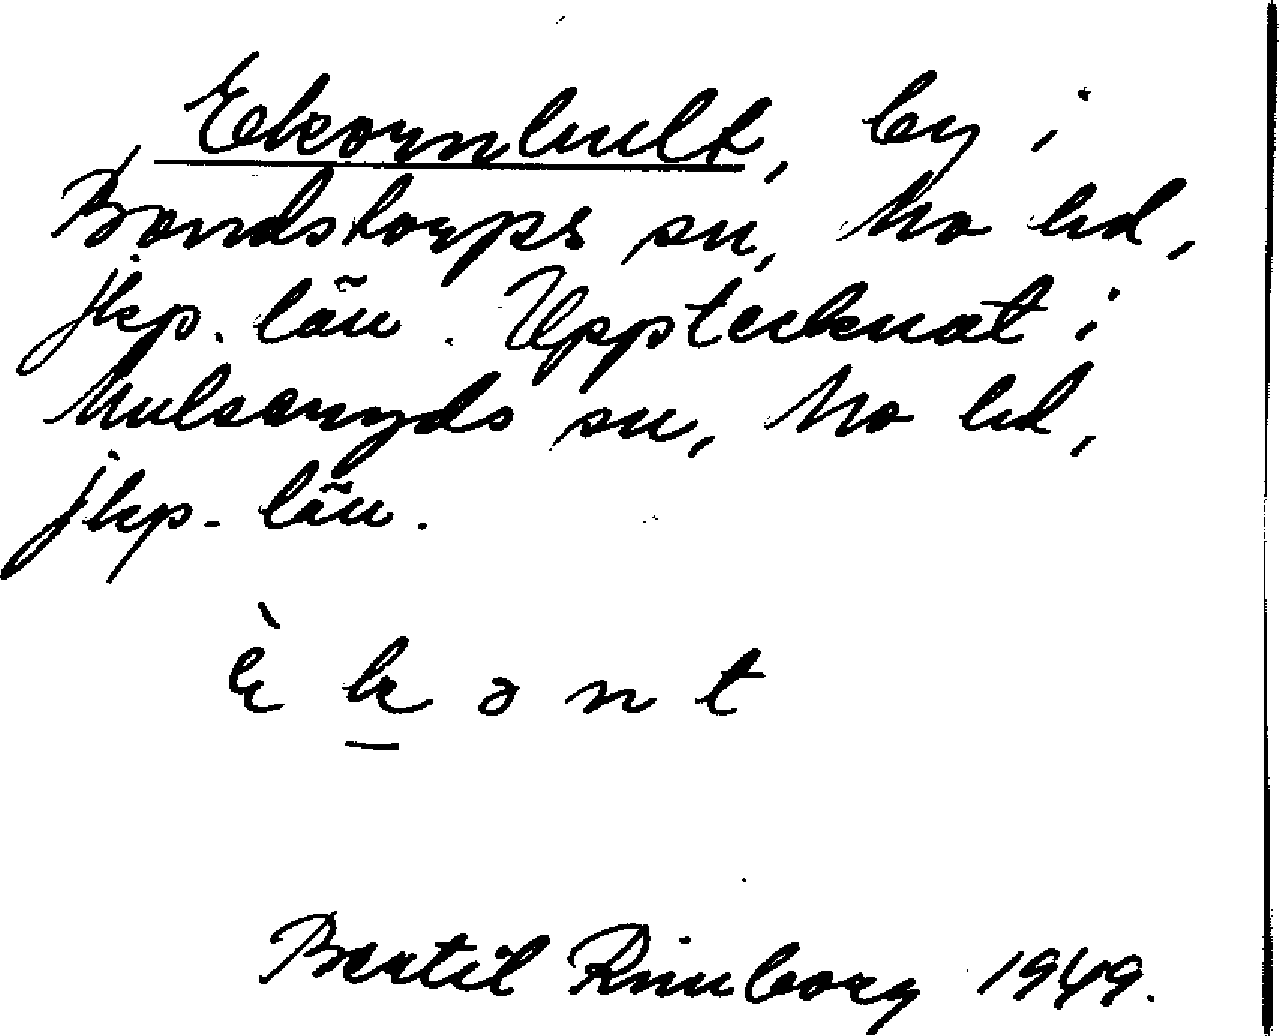 Ekornhult, by i
Bondstorps sn, Mo hd,
Jkp. län. Upptecknat i
Mulseryds sn, Mo hd,
Jkp. län.
È k ə n t
Bertil Rimborg 1949.